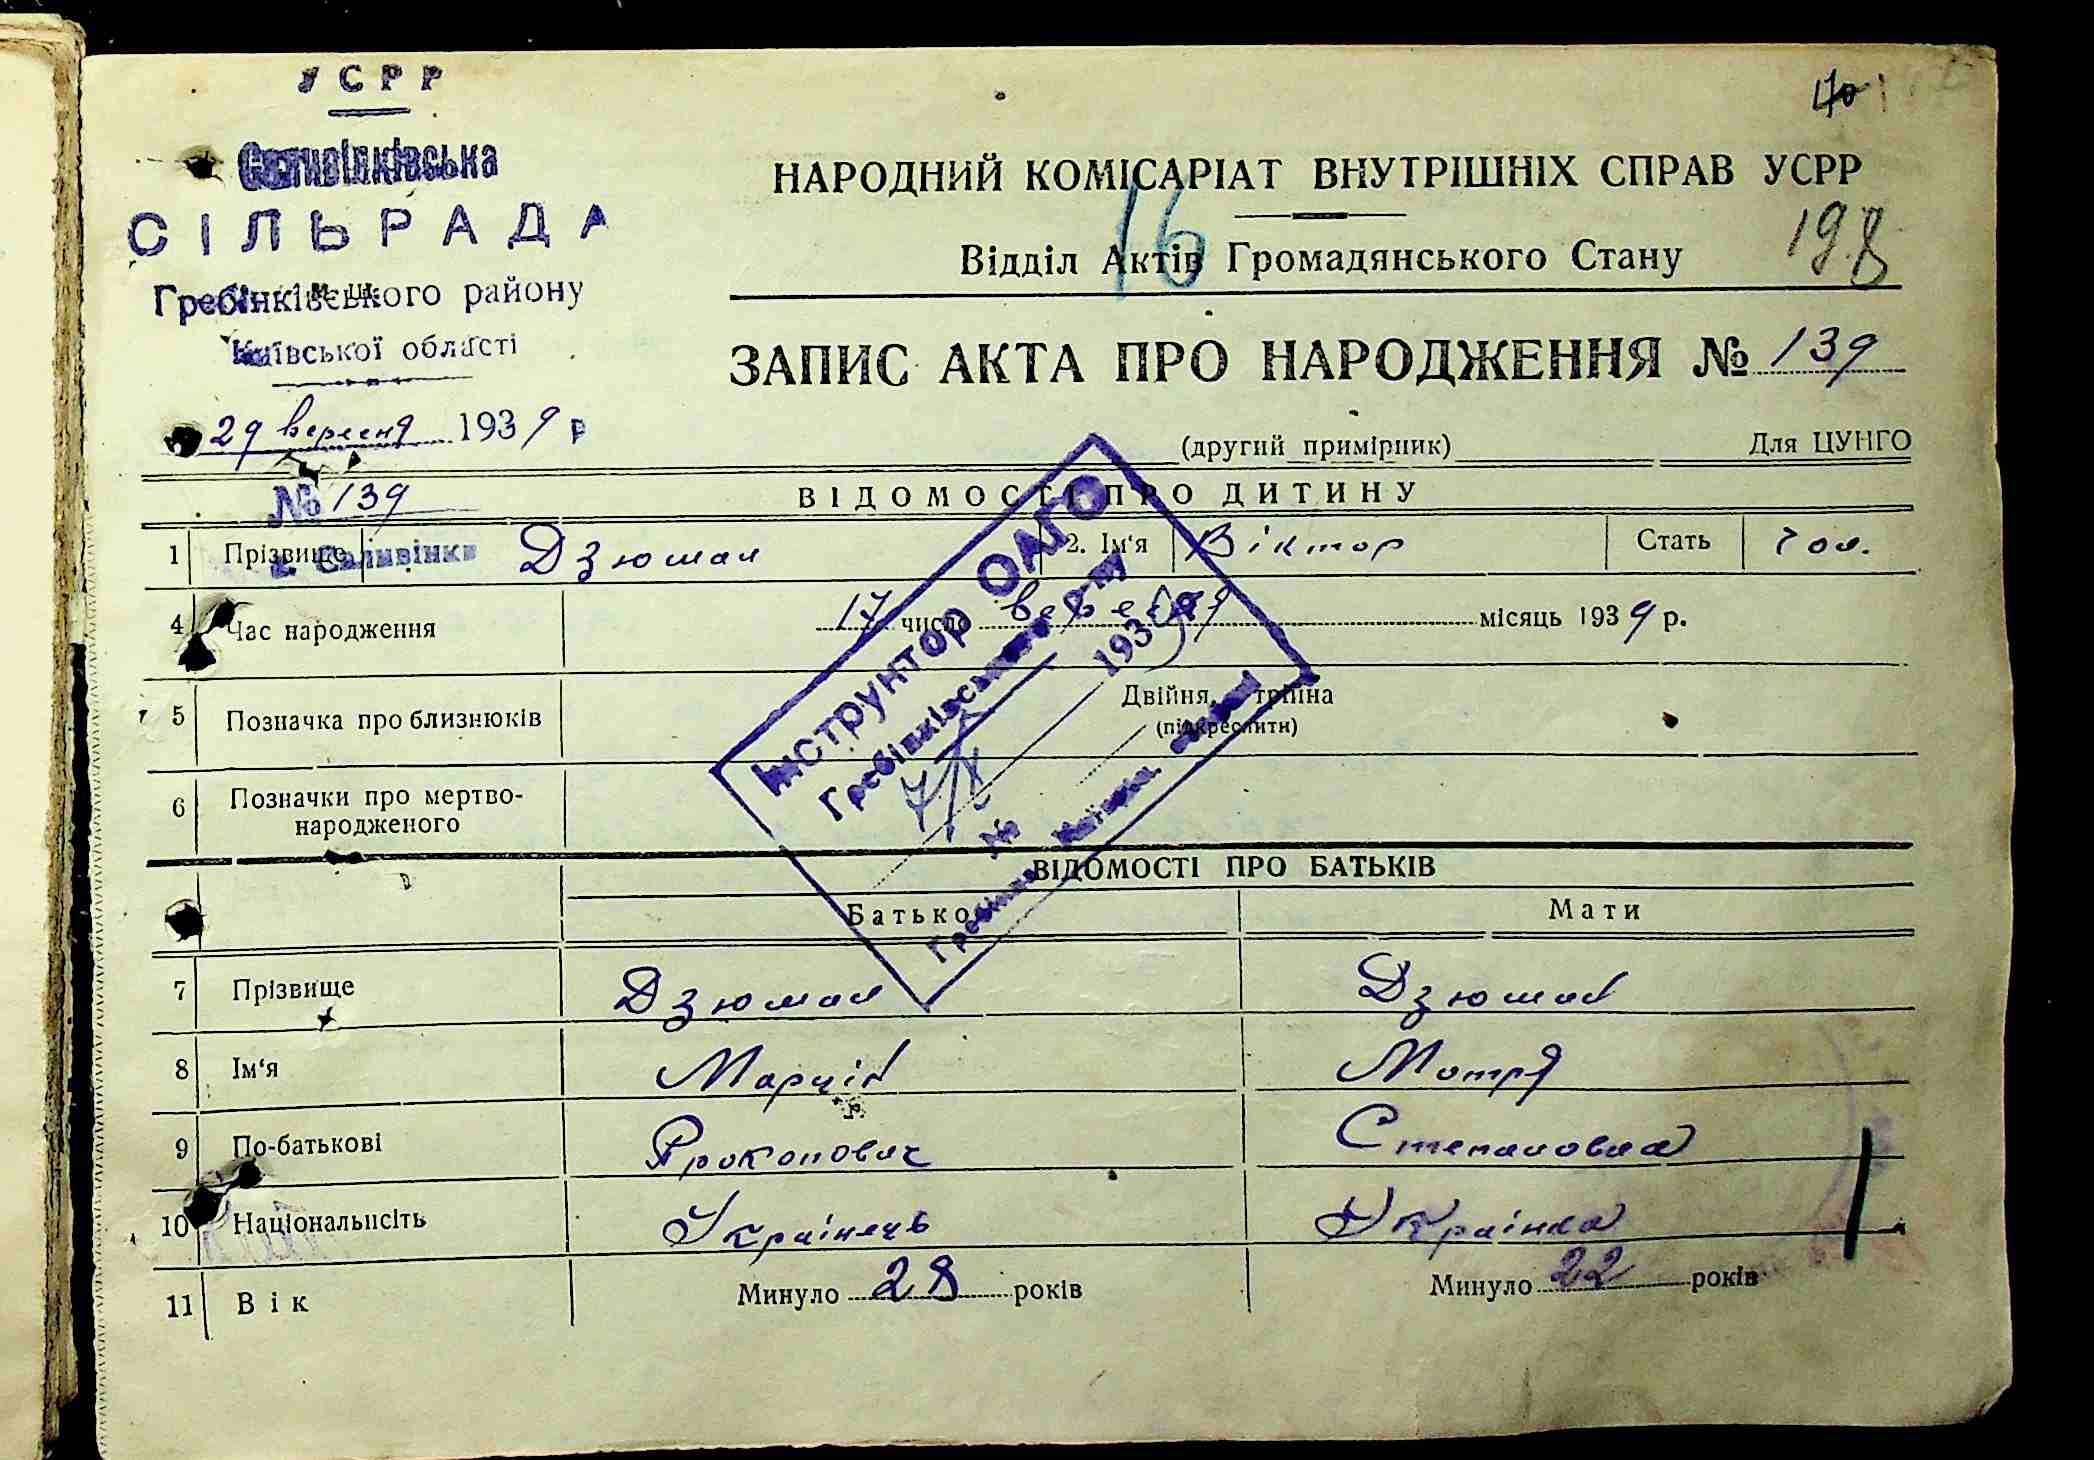 УСРР
Саливінківська
СІЛЬРАДА
Гребінківського району
Київської області
29 вересня 1939 р
№ 139
с. Саливінки
170
НАРОДНИЙ КОМІСАРІАТ ВНУТРІШНІХ СПРАВ УСРР
16
198
Відділ Актів Громадянського Стану
ЗАПИС АКТА ПРО НАРОДЖЕННЯ № 139
(другий примірник) Для ЦУНГО
ВІДОМОСТІ ПРО ДИТИНУ
1 Прізвище Дзюман 2. Ім'я Віктор Стать чол.
4 Час народження 17 число вересня місяць 1939 р.
5 Позначка про близнюків Двійня, трійня
(підкреслити)
6 Позначки про мертво-
народженого
Інструктор ОАГО
Гребінківського р-ну
7/X 1939
№
Гребінки Київськ.
ВІДОМОСТІ ПРО БАТЬКІВ
Батько Мати
7 Прізвище Дзюман Дзюман
8 Ім'я Марцін Мотря
9 По-батькові Прокопович Степановна
10 Національність Українець Українка
11 Вік Минуло 28 років Минуло 22 років